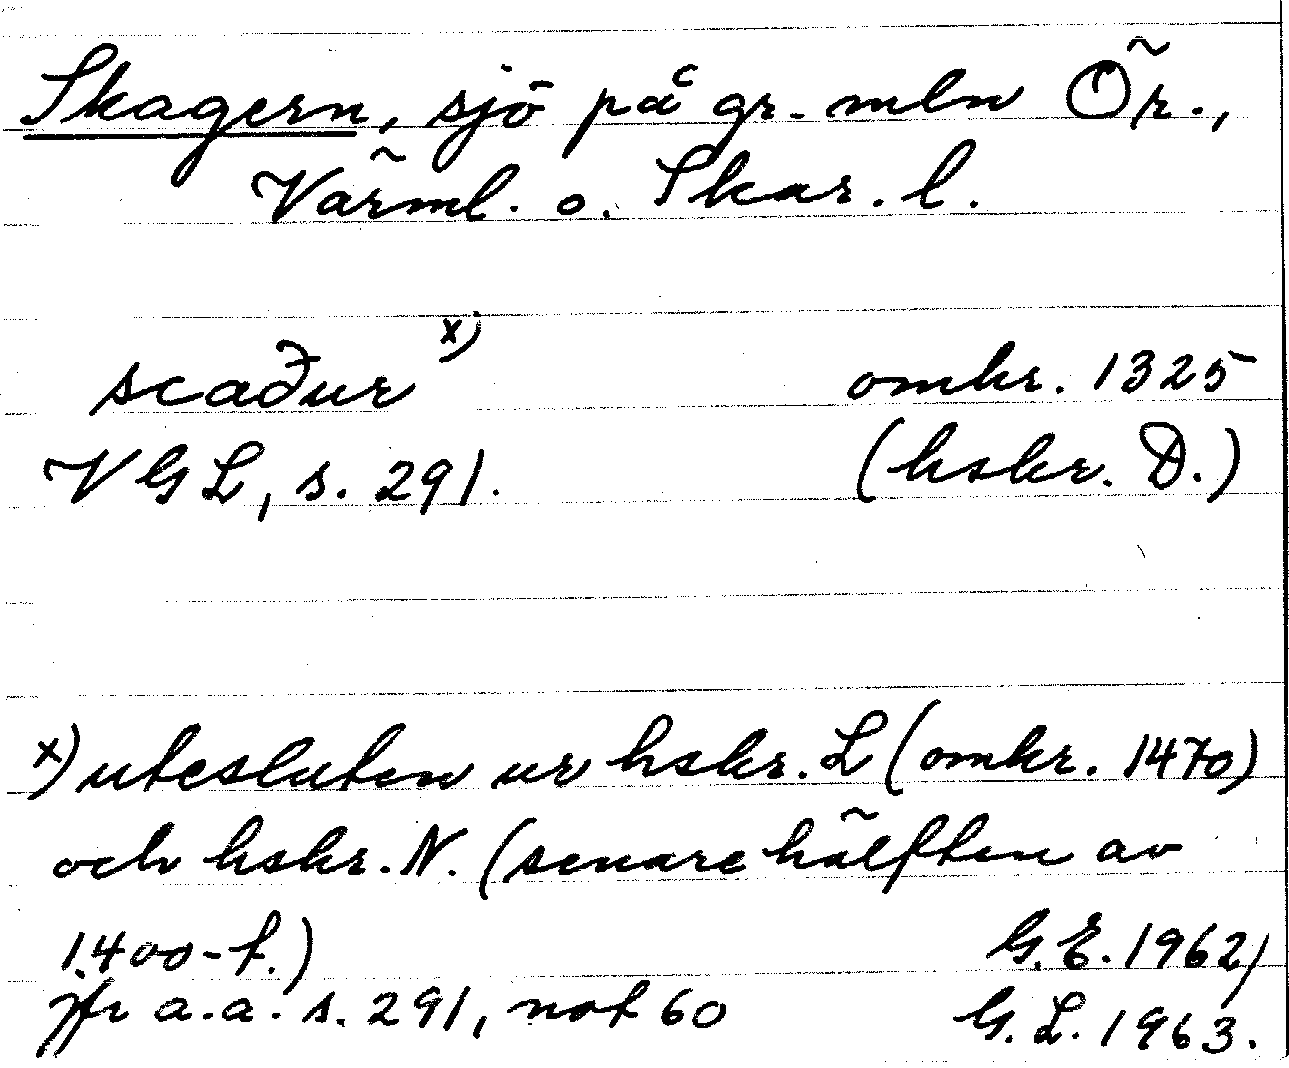 Skagern, sjö på gr. mln Ör.,
Värml. o. Skar. l.
scaður x) omkr. 1325
VGL, s. 291. (hskr. D.)
x) utesluten ur hskr. L (omkr. 1470)
och hskr. N. (senare hälften av
1400-t.) G.E. 1962/
Jfr a.a. s. 291, not 60 G.L. 1963.